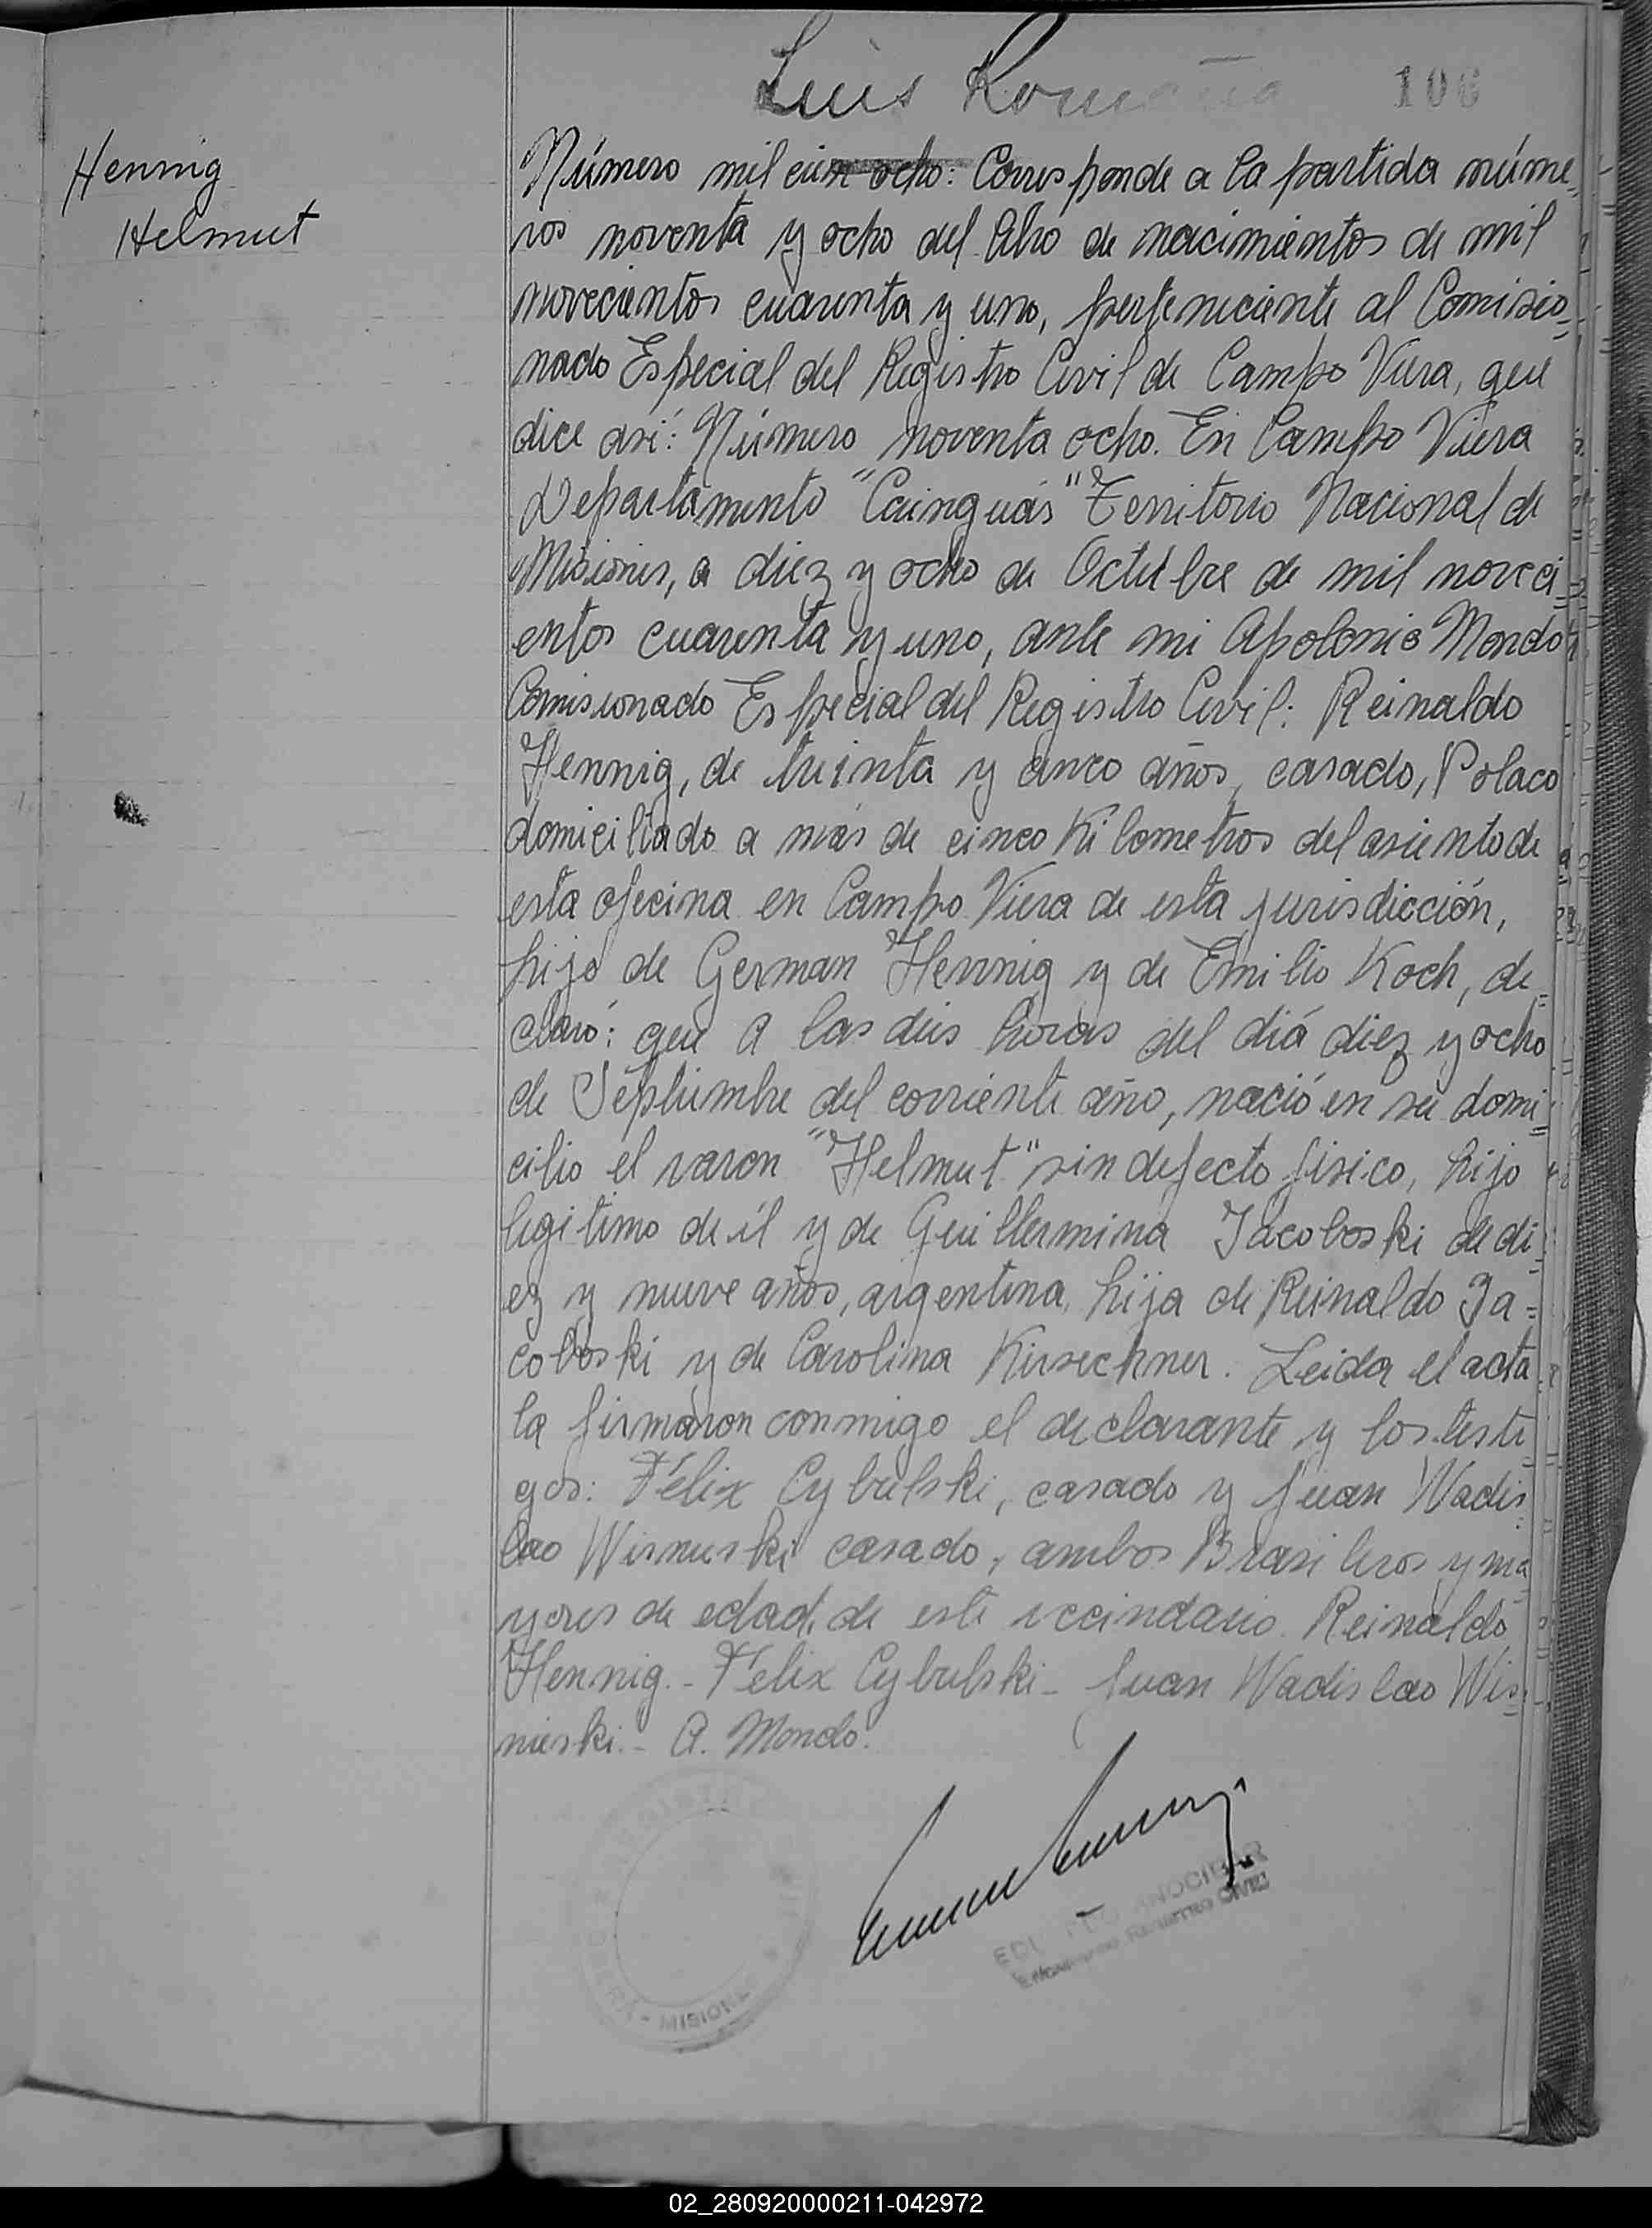 Luis Romaña
106
Hennig
Helmut
Número mil cien ocho: Corresponde a la partida núme=
ros noventa y ocho del libro de nacimientos de mil
novecientos cuarenta y uno, perteneciente al Comisio=
nado Especial del Registro Civil de Campo Viera, que
dice así: Número noventa ocho. En Campo Viera
Departamento "Cainguás" Territorio Nacional de
Misiones, a diez y ocho de Octubre de mil noveci=
entos cuarenta y uno, ante mi Apolonio Mondo
Comisionado Especial del Registro Civil: Reinaldo
Hennig, de treinta y cinco años, casado, Polaco
domiciliado a más de cinco Kilometros del asiento de
esta oficina en Campo Viera de esta jurisdicción,
hijo de German Hennig y de Emilio Koch, de=
claró: que a las dies horas del diá diez y ocho
de Septiembre del corriente año, nació en su domi=
cilio el varon "Helmut" sin defecto fisico, hijo
legitimo de él y de Guillermina Jacoboski de di=
ez y nueve años, argentina, hija de Reinaldo Ja=
coboski y de Carolina Kirsechner. Leida el acta
la firmaron conmigo el declarante y los testi=
gos: Félix Cybulski, casado y Juan Wadis=
lao Wisnieski casado, ambos Brasileros y ma=
yores de edad, de este vecindario. Reinaldo
Hennig.- Félix Cybulski- Juan Wadislao Wis=
nieski.- A. Mondo.
MISIONES
REGISTRO CIVIL
02_280920000211-042972